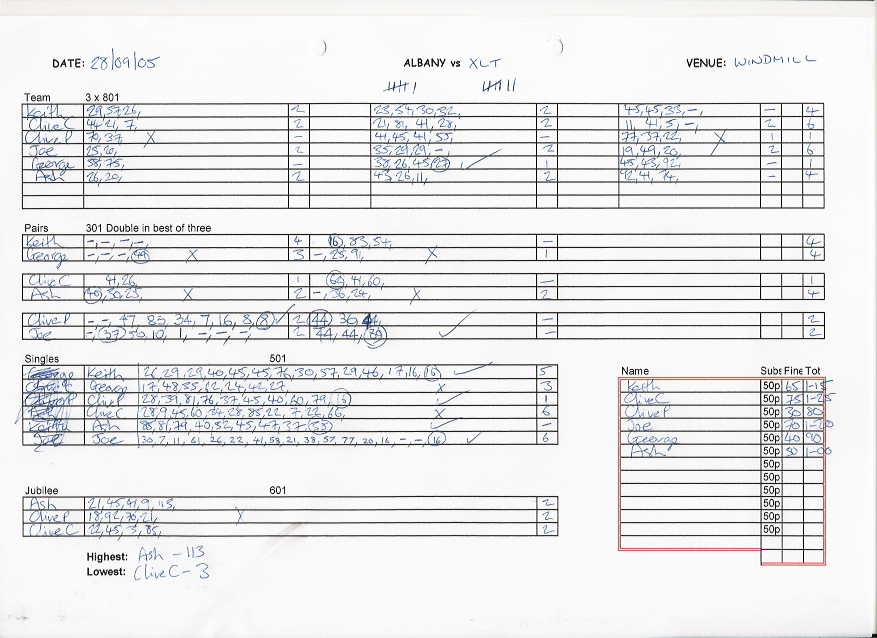 DATE: 28/09/05 ALBANY vs XLT VENUE: WINDMILL
Team 3 x 801
Keith 29,57,26, 2 23,54,30,32, 2 45,45,33,-, - 4
Clive C 44,21,7, 2 21,81,41,28, 2 11,41,5,-, 2 6
Clive P 70,37, X - 41,45,41,55, - 77,37,22, X 1 1
Joe 25,26, 2 85,29,29,-, 2 19,49,20, 2 6
George 58,75, - 38,26,45,(27) 1 45,43,92, - 1
Ash 26,20, 2 43,26,11, 2 42,41,74, - 4
Pairs 301 Double in best of three
Keith -,-,-,-, 4 (16),83,54, - 4
George -,-,-,(49) X 3 -,25,9, X 1 4
Clive C 41,26, 1 41,60, - 1
Ash 2 -,36,24, X 2 4
Clive P -,-,47,83,34,7,16,8,(8) 2 (44),36, - 2
Joe -,(37),50,10,1,-,-,-, 2 44,44, - 2
Singles 501
Keith 26,29,29,40,45,45,76,30,57,29,46,17,16,(16) 5
George 17,48,35,62,24,42,27, X 3
Clive P 28,39,81,76,37,45,40,60,79,(16) 1
Clive C 28,9,45,60,24,28,85,22,7,22,65, X 6
Ash 85,81,79,40,52,45,47,37,(35) -
Joe Joe 30,7,11,61,26,22,41,58,21,38,57,77,20,16,-,-,(16) 6
Name Subs Fine Tot
Keith 50p 65 1-15
Clive C 50p 75 1-25
Clive P 50p 30 80
Joe 50p 70 1-20
George 50p 40 90
Ash 50p 50 1-00
50p
50p
50p
50p
50p
50p
Jubilee 601
Ash 21,45,41,9,113, 2
Clive P 18,92,70,21, X 2
Clive C 22,45,3,85, 2
Highest: Ash - 113
Lowest: Clive C - 3